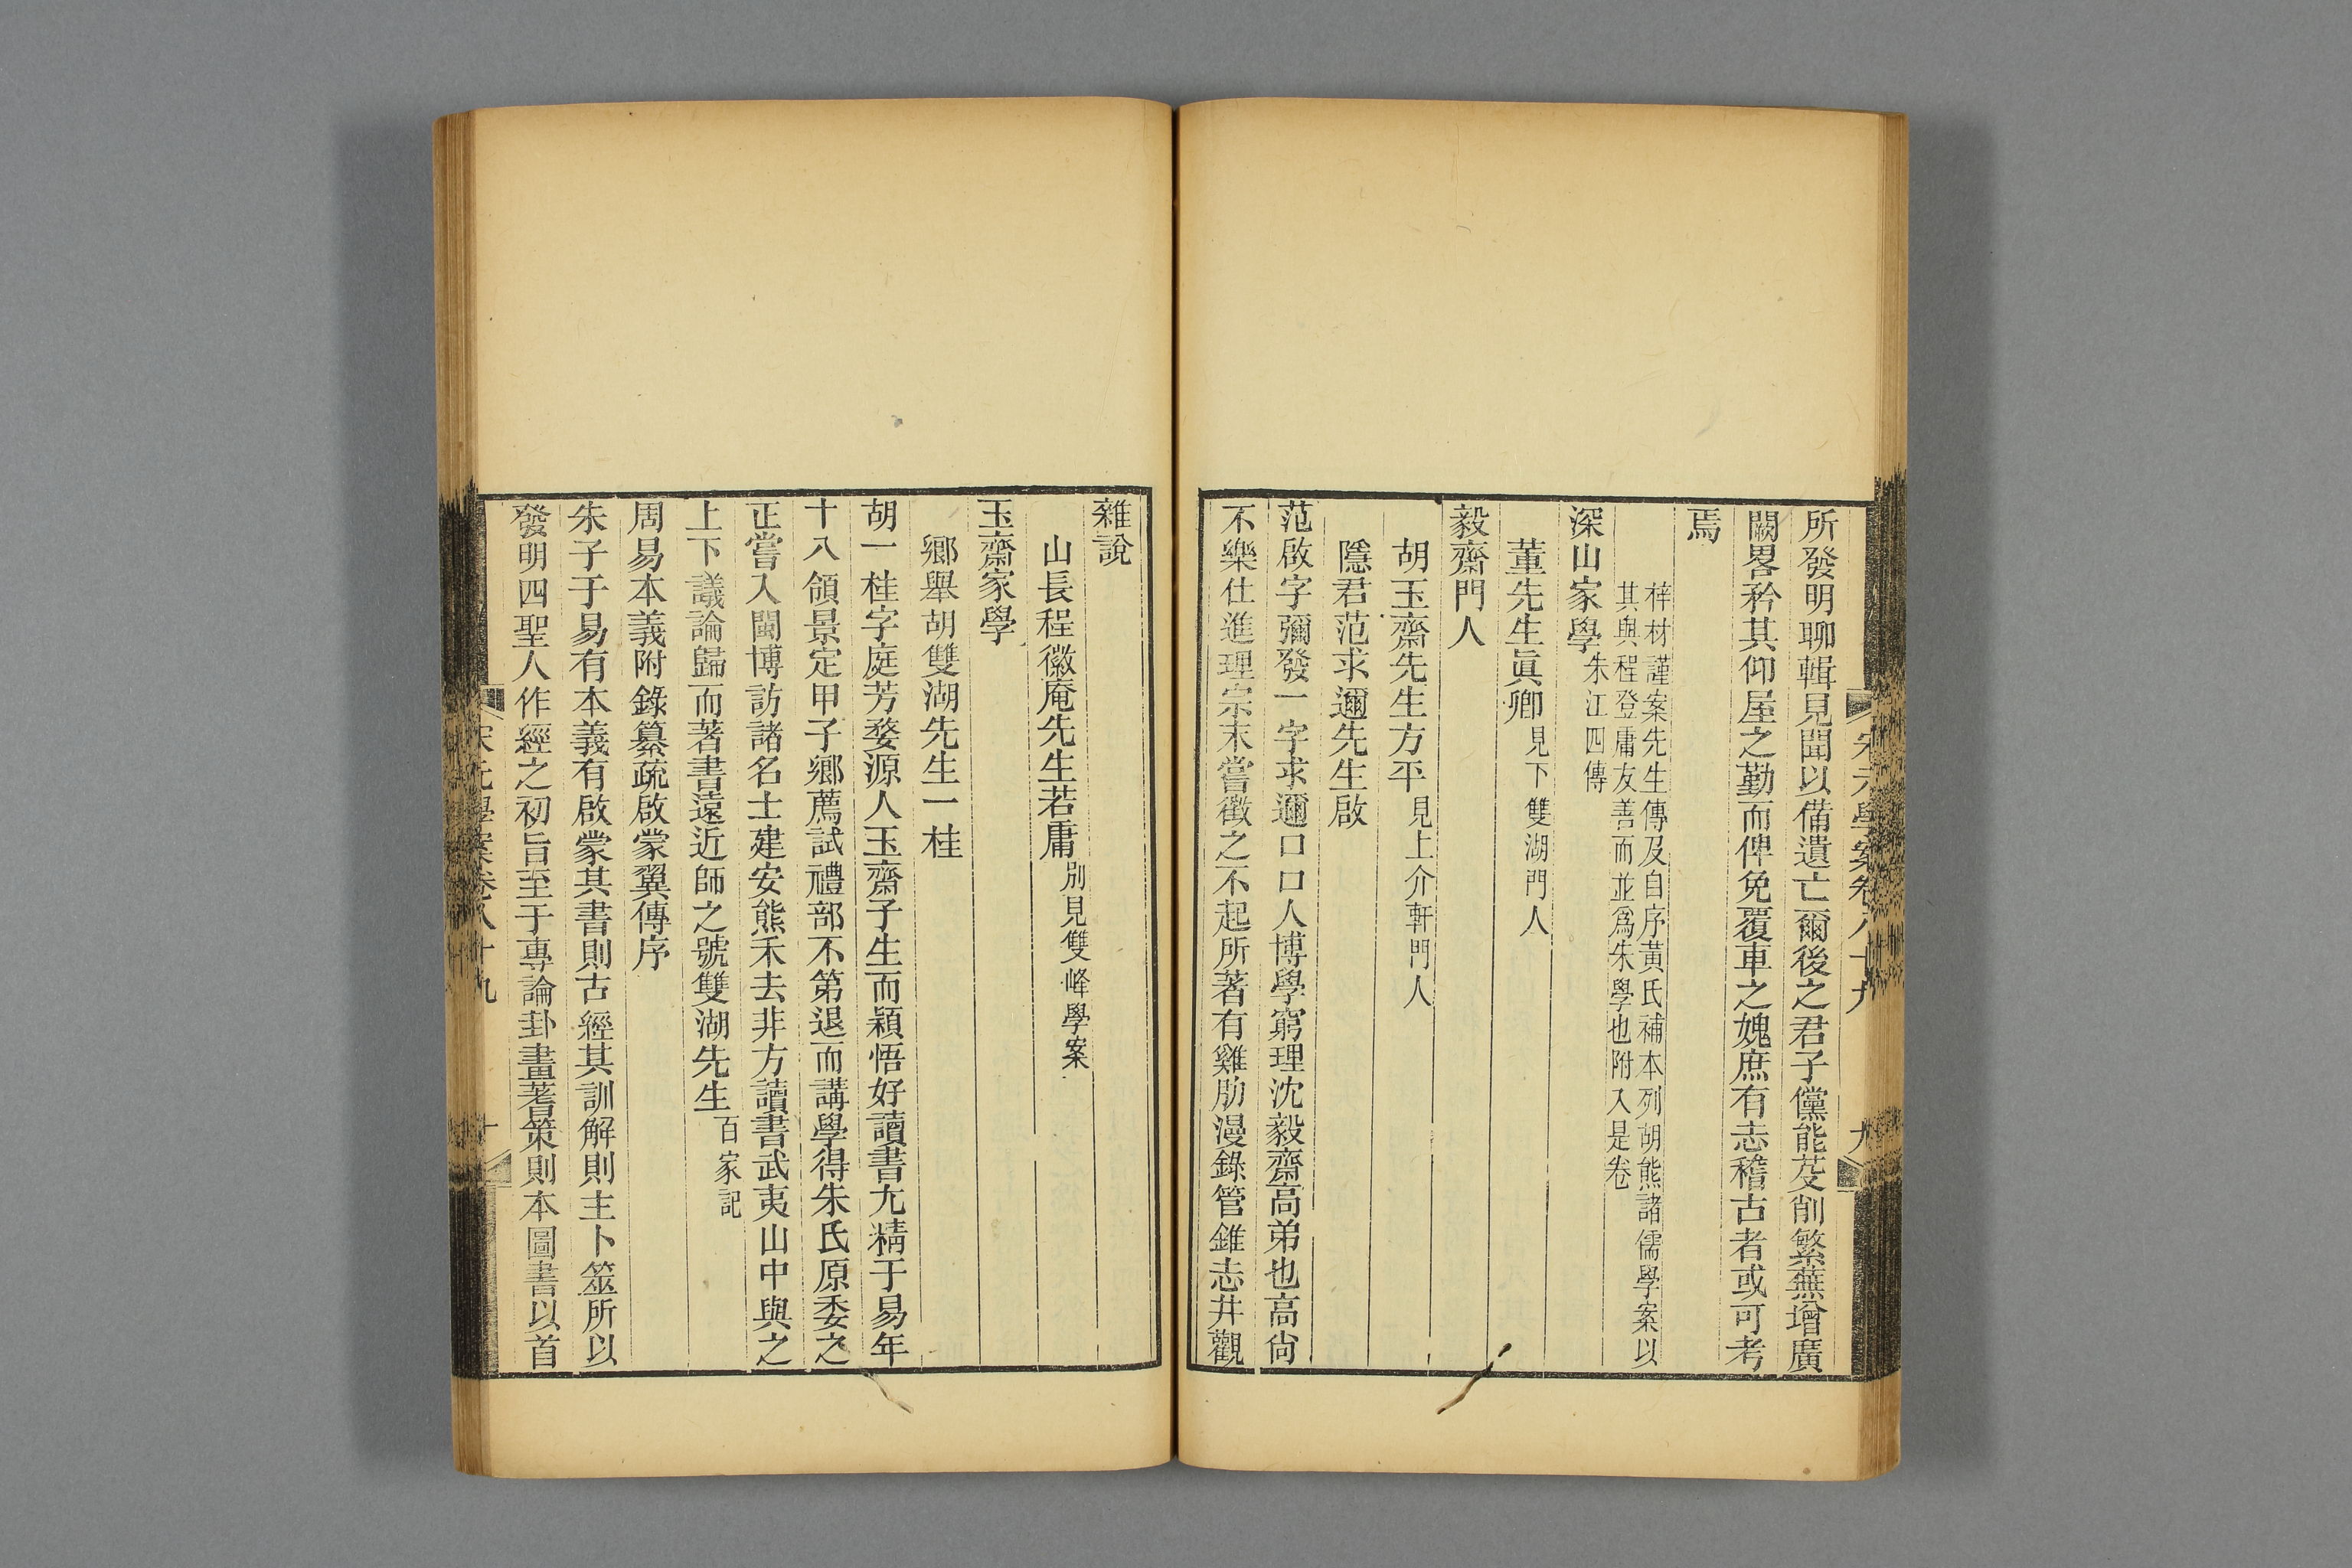 所發明聊輯見聞以備遺亡爾後之君子儻能芟削繁蕪增廣
闕畧矜其仰屋之勤而俾免覆車之媿庶有志稽古者或可考
焉
梓材謹案先生傳及自序黃氏補本列胡熊諸儒學案以
其與程登庸友善而並爲朱學也附入是卷
深山家學朱江四傳
董先生眞卿見下雙湖門人
毅齋門人
胡玉齋先生方平見上介軒門人
隱君范求邇先生啟
范啟字彌發一字求邇口口人博學窮理沈毅齋高弟也高尙
不樂仕進理宗末嘗徵之不起所著有雞肋漫錄管錐志井觀
雜說
山長程徽庵先生若庸別見雙峰學案
玉齋家學
鄉舉胡雙湖先生一桂
胡一桂字庭芳婺源人玉齋子生而穎悟好讀書尤精于易年
十八領景定甲子鄉薦試禮部不第退而講學得朱氏原委之
正嘗入閩博訪諸名士建安熊禾去非方讀書武夷山中與之
上下議論歸而著書遠近師之號雙湖先生百家記
周易本義附錄纂疏啟蒙翼傳序
朱子于易有本義有啟蒙其書則古經其訓解則主卜筮所以
發明四聖人作經之初旨至于專論卦畫蓍策則本圖書以首
宋元學案卷八十九
九
宋元學案卷八十九
十